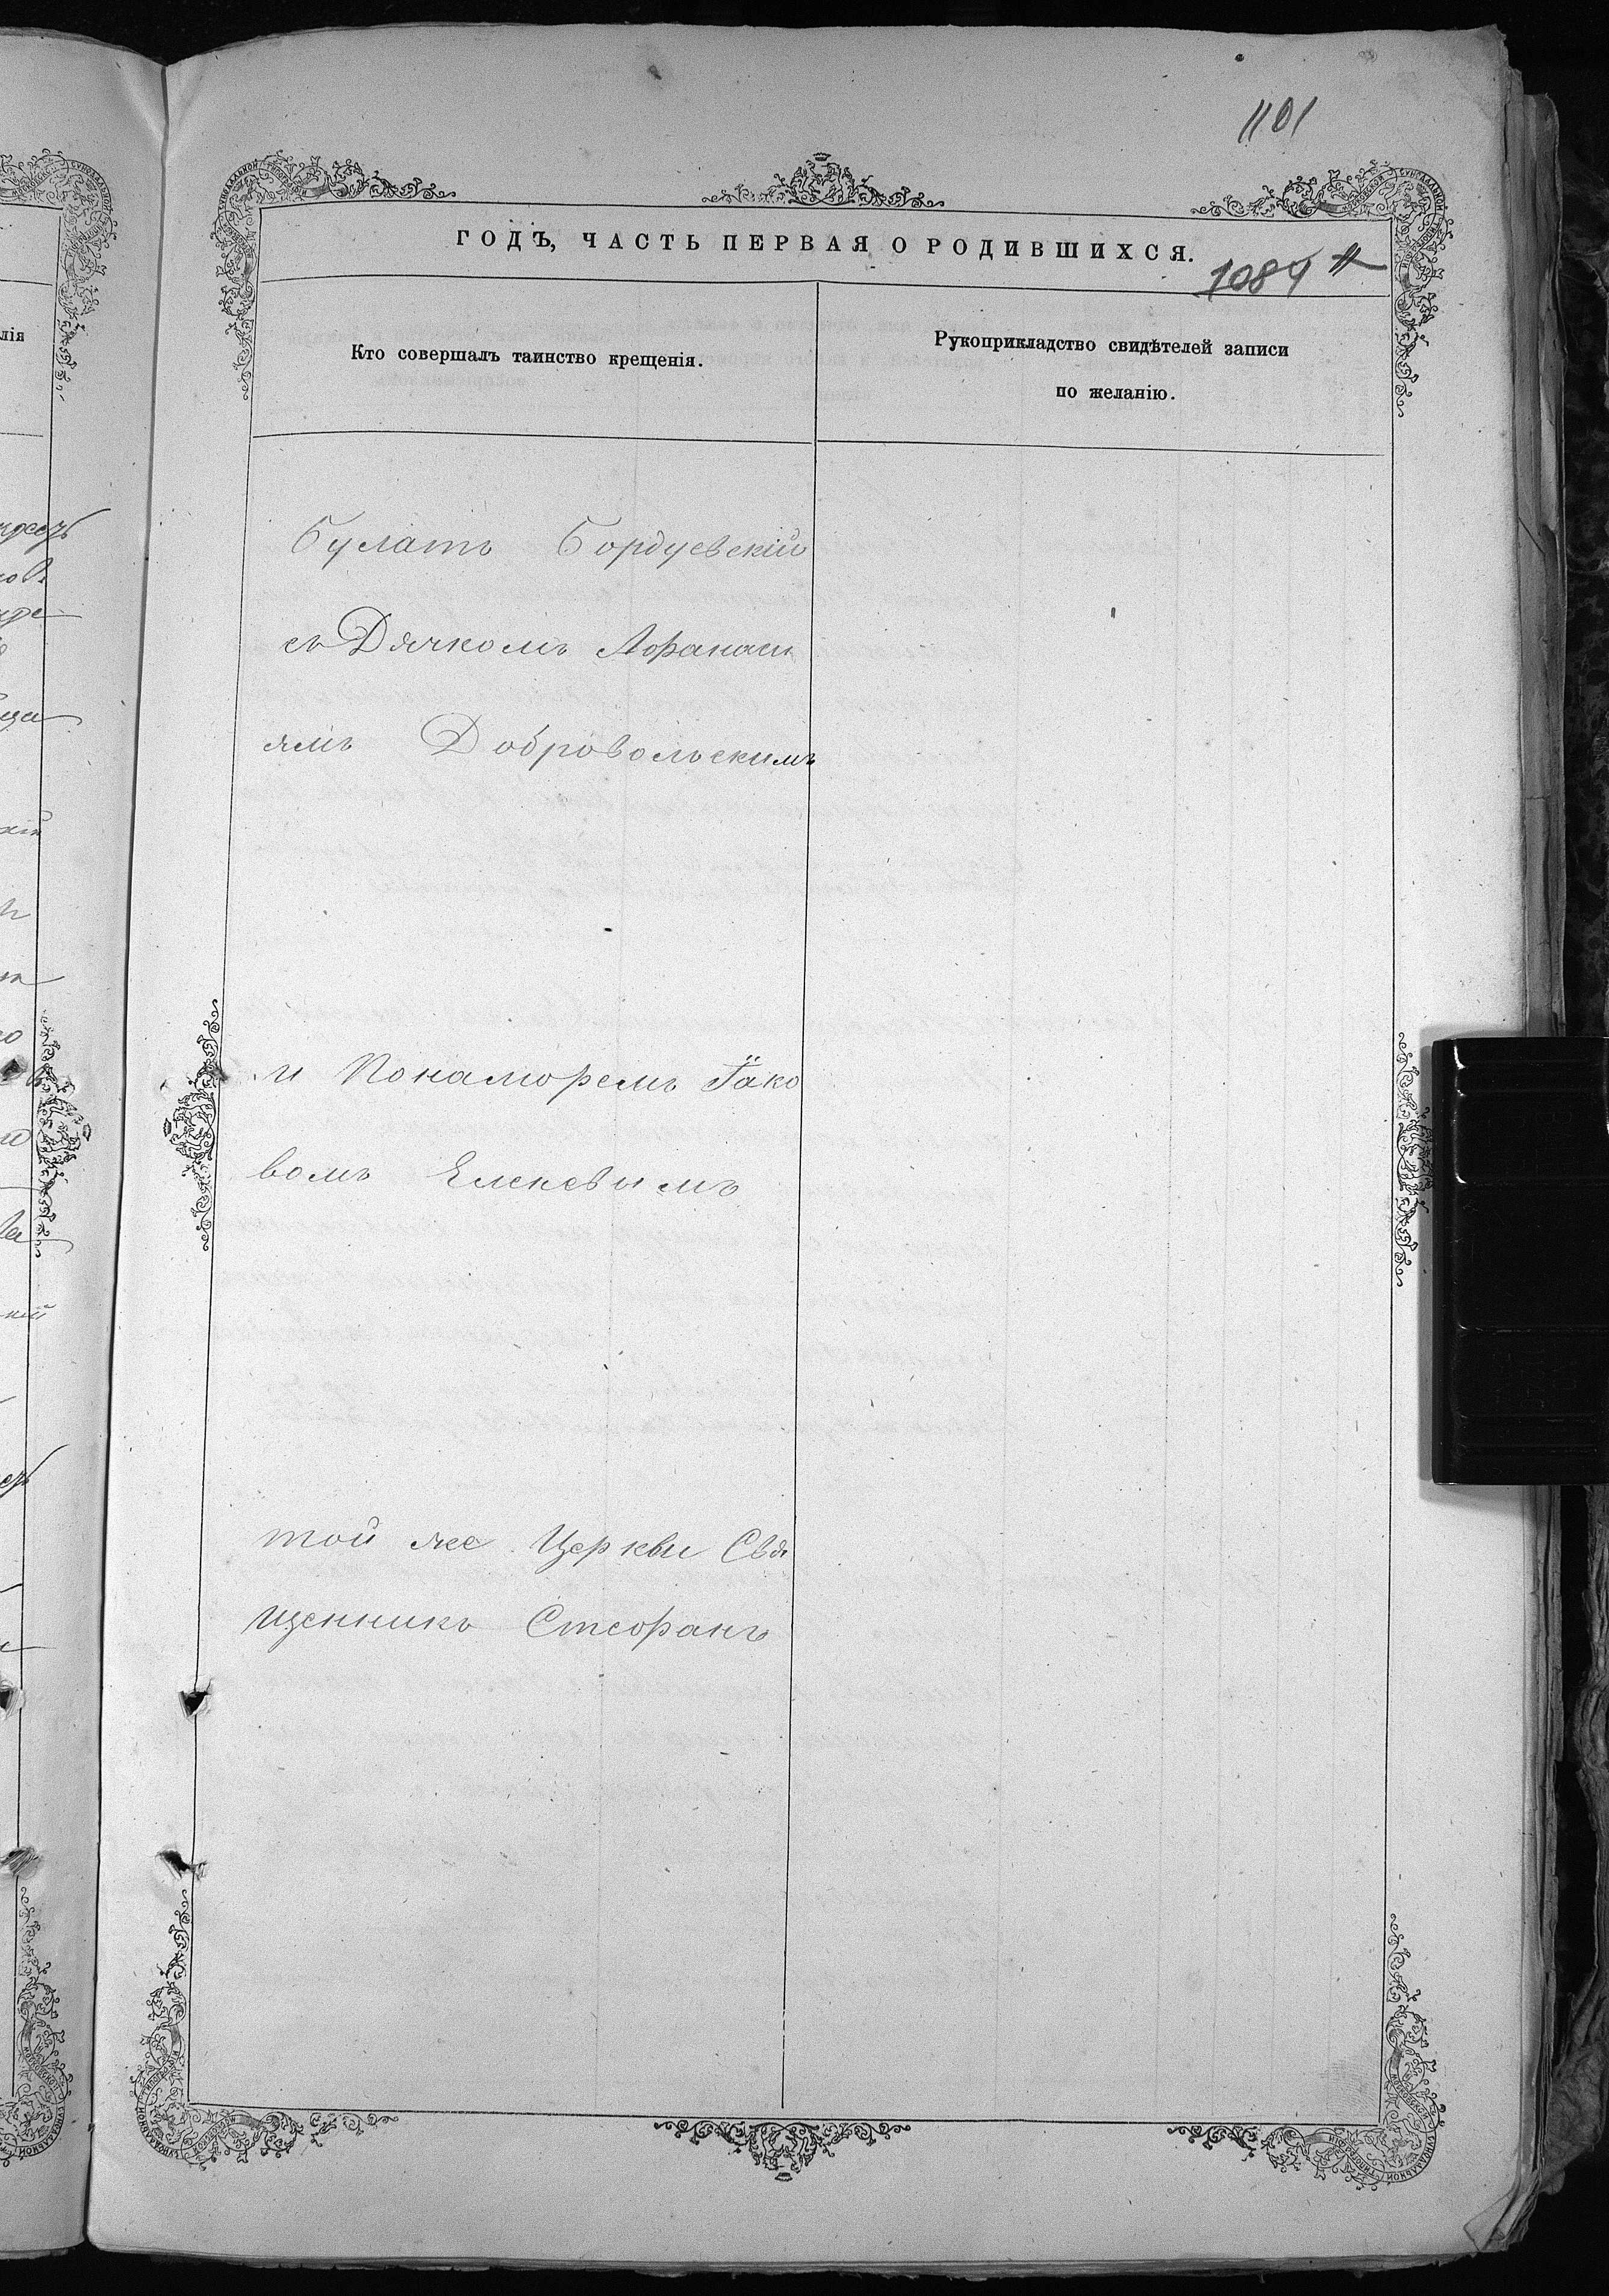 1101
ГОДЪ, ЧАСТЬ ПЕРВАЯ О РОДИВШИХСЯ.
1084
Кто совершалъ таинство крещенія.
Рукоприкладство свидѣтелей записи
по желанію.
лія
Булатъ Бордуевскій
съ Дячкомъ Афанасі
ямъ Добровольскимъ
и Понаморемъ Іако
вомъ Еленевымъ
той же Церкви Свя
щенникъ Стефанъ